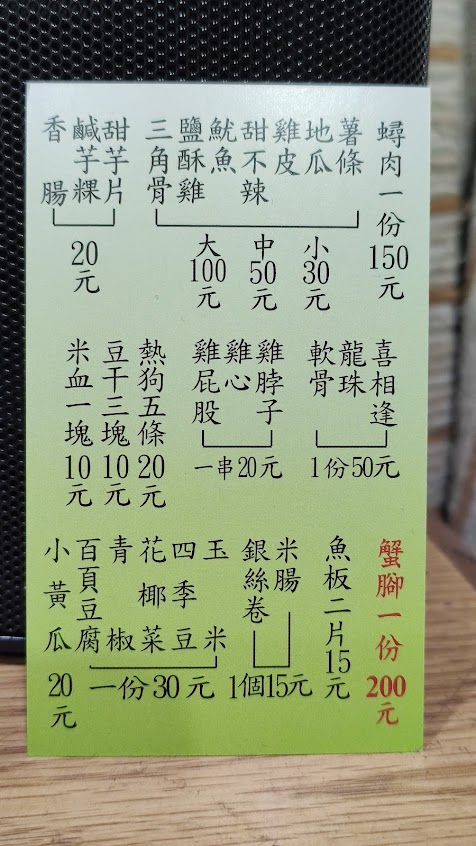 蟳肉一份150元
薯條
地瓜
雞皮
甜不辣
魷魚
鹽酥雞
三角骨
小30元
中50元
大100元
甜芋片
鹹芋粿
香腸
20元
喜相逢
龍珠
軟骨
1份50元
雞脖子
雞心
雞屁股
一串20元
熱狗五條20元
豆干三塊10元
米血一塊10元
蟹腳一份200元
魚板二片15元
米腸
銀絲卷
1個15元
玉米
四季豆
花椰菜
青椒
百頁豆腐
一份30元
小黃瓜
20元